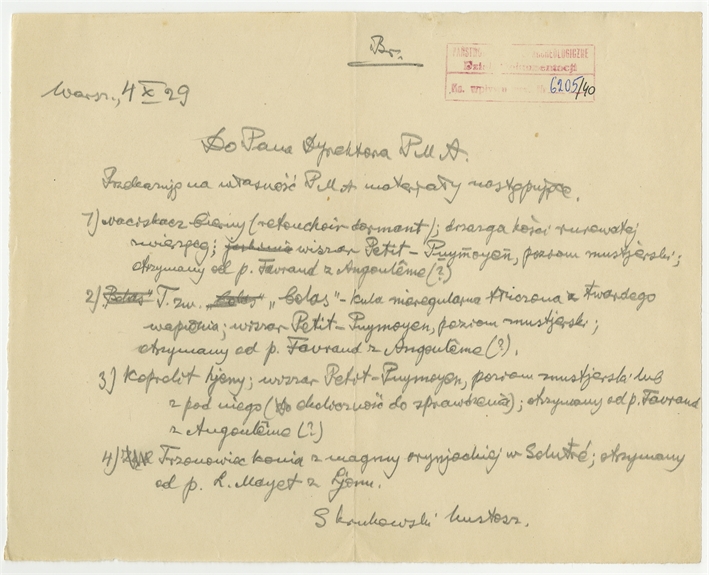 Br.
PAŃSTWOWE MUZEUM ARCHEOLOGICZNE
Dział Dokumentacji
Nr. 6205/40
Warsz., 4 X 29
Do Pana Dyrektora P M A.
Przekazuję na własność P M A materjały następujące.
1) naciskacz bierny (retouchoir dormant); drzazga kości rurowatej
zwierzęcej; wiszar Petit-Puymoyen, poziom mustjerski;
otrzymany od p. Favraud z Angoulême (?)
2) "Bolas" T. zw. "bolas" - kula nieregularna tłuczona z twardego
wapienia; wiszar Petit-Puymoyen, poziom mustjerski;
otrzymany od p. Favraud z Angoulême (?).
3) Koprolit hjeny; wiszar Petit-Puymoyen, poziom mustjerski lub
z pod niego (okoliczność do sprawdzenia); otrzymany od p. Favraud
z Angoulême (?)
4) Trzonowiec konia z magmy orynjackiej w Solutré; otrzymany
od p. L. Mayet z Ljonu.
S Krukowski kustosz.